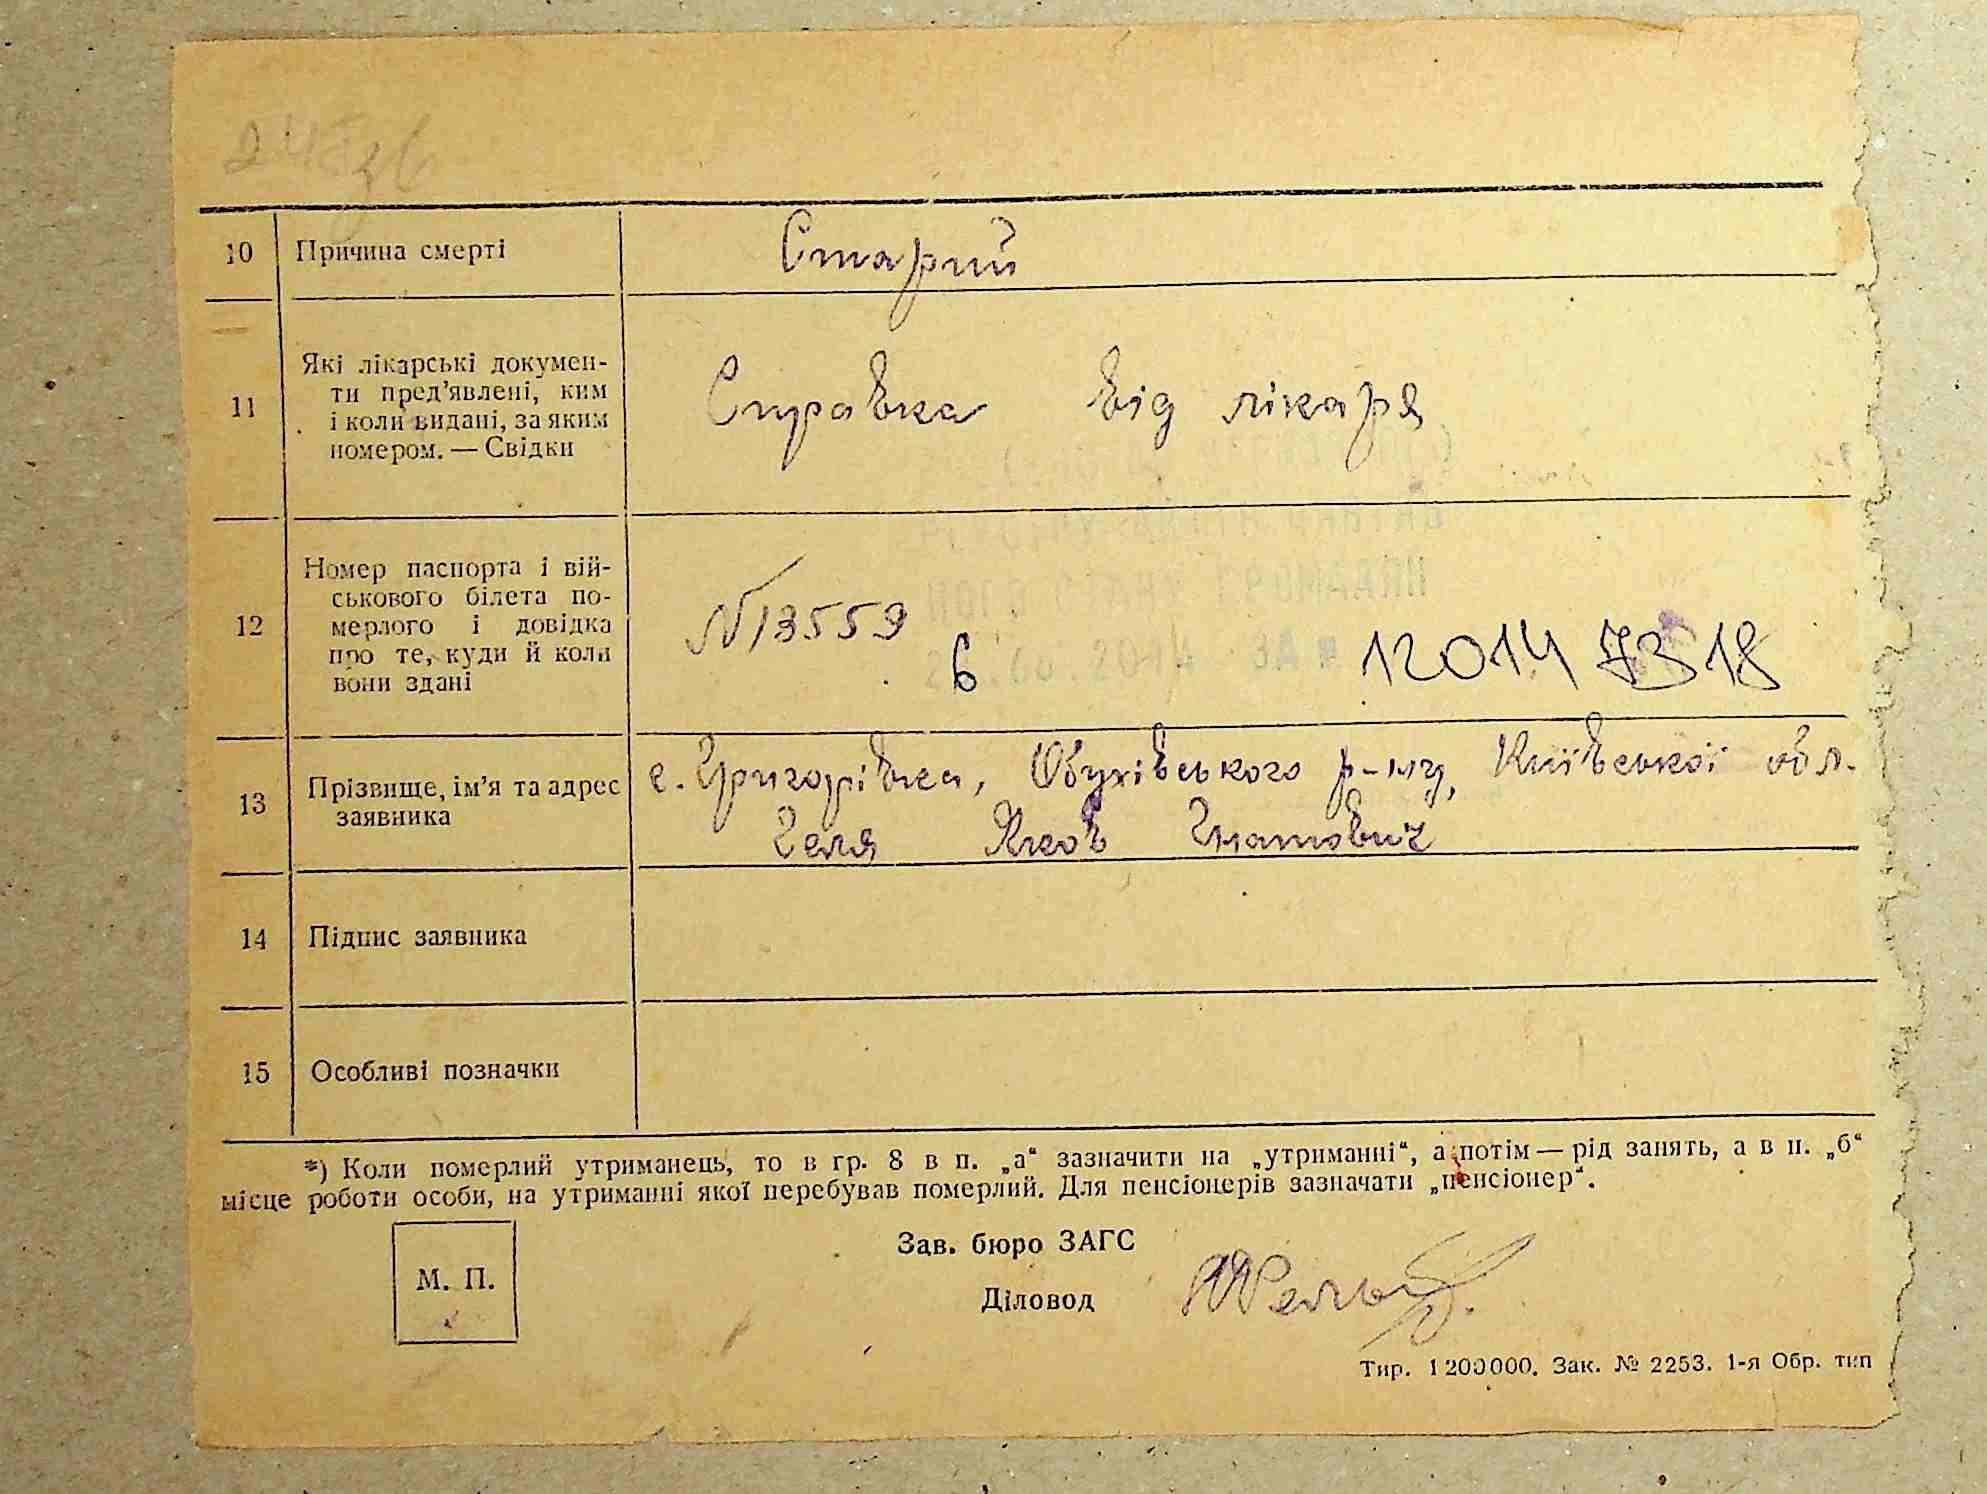 10 Причина смерті Старий
11 Які лікарські докумен-
ти пред'явлені, ким
і коли видані, за яким
номером. — Свідки
Справка від лікаря
12 Номер паспорта і вій-
ськового білета по-
мерлого і довідка
про те, куди й коли
вони здані
N 13559
6 12014 73 18
13 Прізвище, ім'я та адрес
заявника
с. Григорівка, Обухівського р-ну, Київської обл.
Геля Яков Гнатович
14 Підпис заявника
15 Особливі позначки
*) Коли померлий утриманець, то в гр. 8 в п. „а“ зазначити на „утриманні“, а потім — рід занять, а в п. „б“
місце роботи особи, на утриманні якої перебував померлий. Для пенсіонерів зазначати „пенсіонер“.
Зав. бюро ЗАГС
М. П.
Діловод
Тир. 1 200000. Зак. № 2253. 1-я Обр. тип